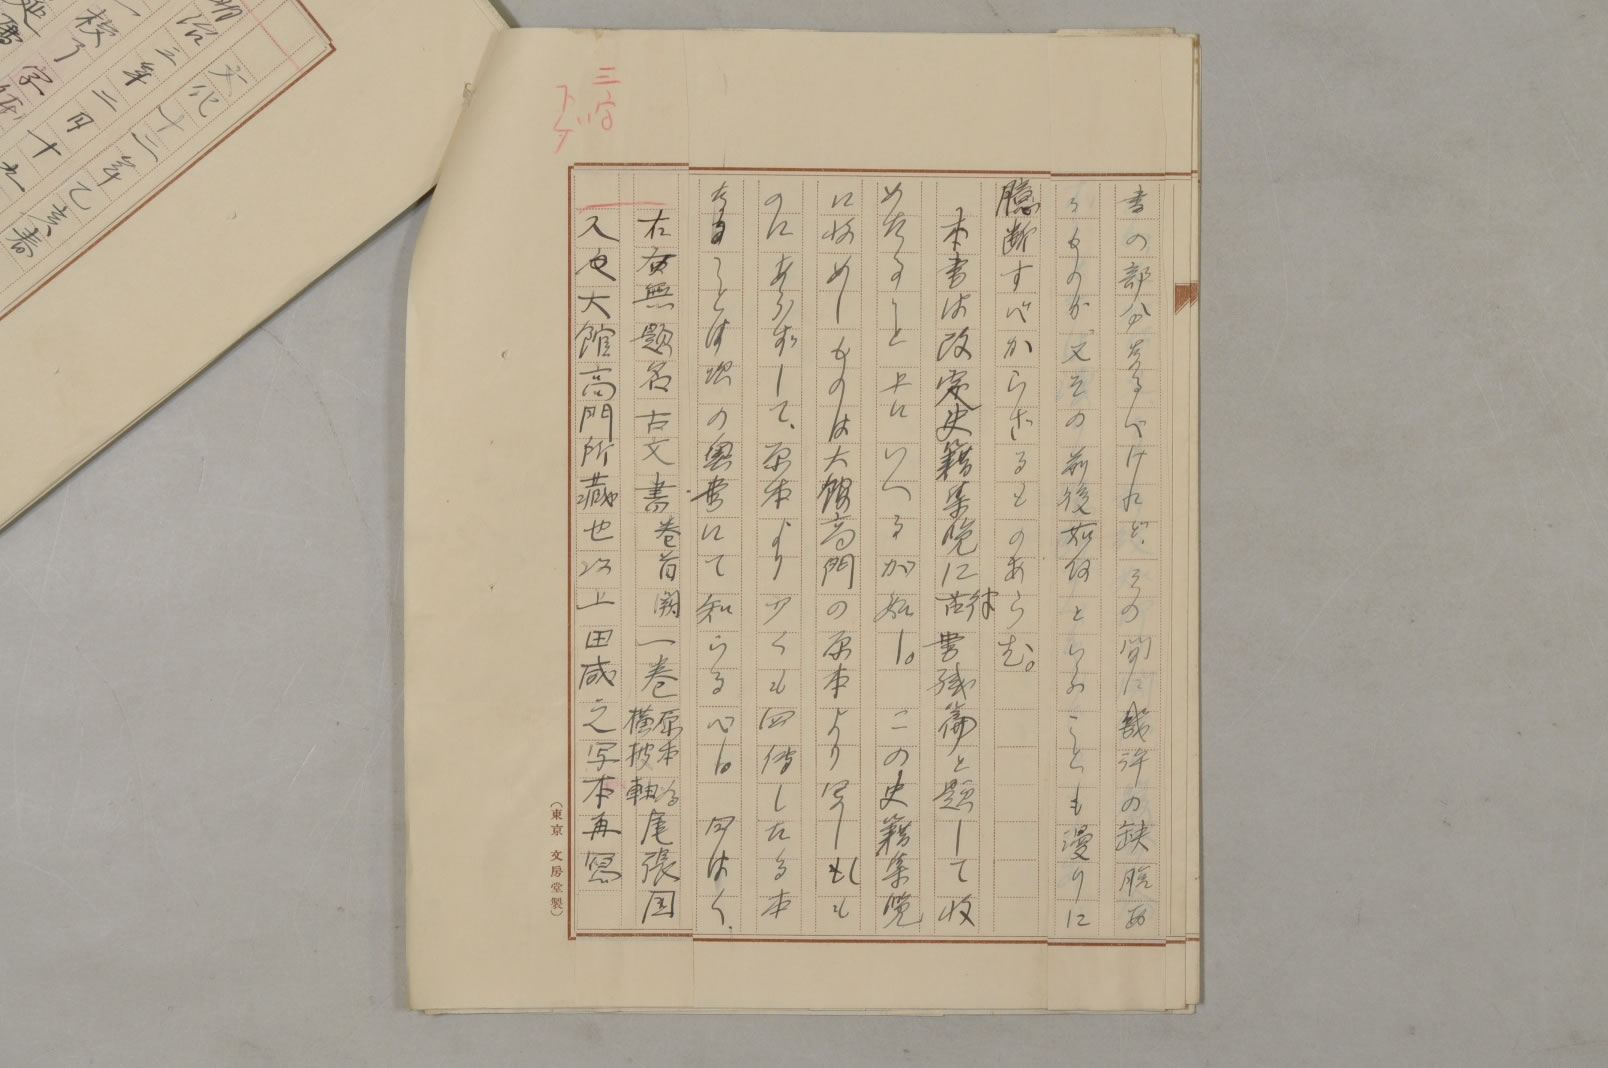 書の部分なるべけれど、その間に幾許の缺脱あ
るものか、又その前後如何といふことも漫りに
臆断すべからざるものあらむ。
本書は改定史籍集覧に古律書残篇と題して收
めたること上にいへるが如し。この史籍集覧
に收めしものは大館高門の原本より写ししも
のにあらずして、原本より少くも四傳したる本
なることは次の奥書にて知らる心し。曰はく、
右有無題名古文書 巻首闕 一巻 原本 横披軸 尾張国
人也大館高門所藏也以上田咸之写本再寫
三字下ケ
(東京 文房堂製)
文化十二年乙亥春
明治三年二月十九
一校了